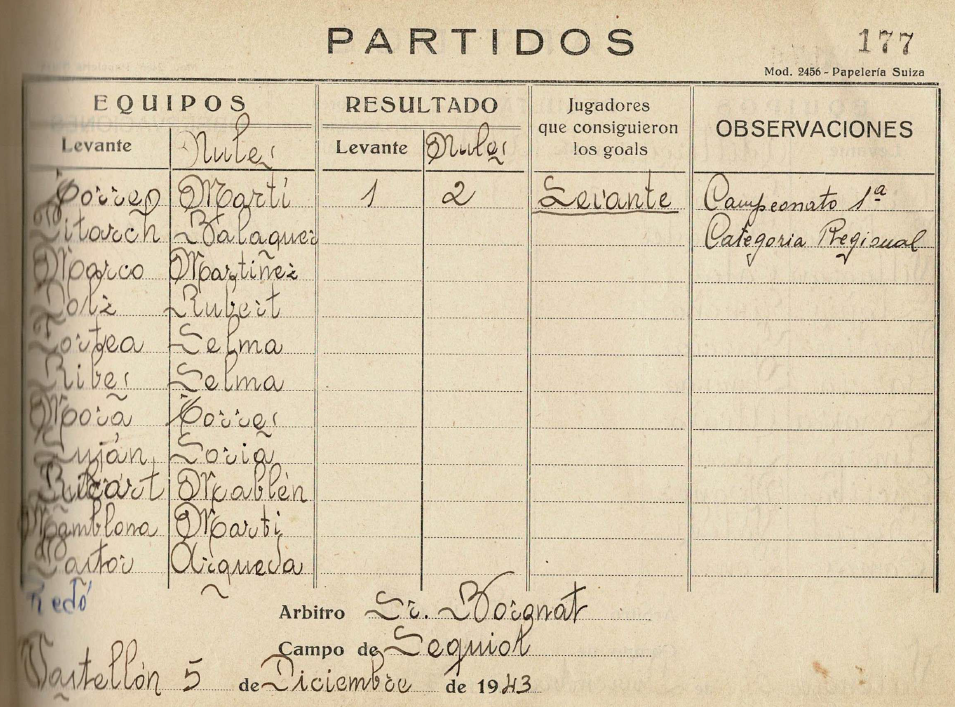 PARTIDOS 177
Mod. 2456 - Papelería Suiza
EQUIPOS RESULTADO Jugadores que consiguieron los goals OBSERVACIONES
Levante Nules Levante Nules
Torres Martí 1 2 Levante Campeonato 1ª
Litarch Balaguer Categoria Regional
Marco Martiñez
Dolz Rubert
Zorfea Selma
Ribes Selma
Mora Torres
Luján Soria
Mablén
Mamblona Marti
Pastor Arqueda
Redó
Arbitro Sr. Borgnat
Campo de Sequiol
Castellón 5 de Diciembre de 1943